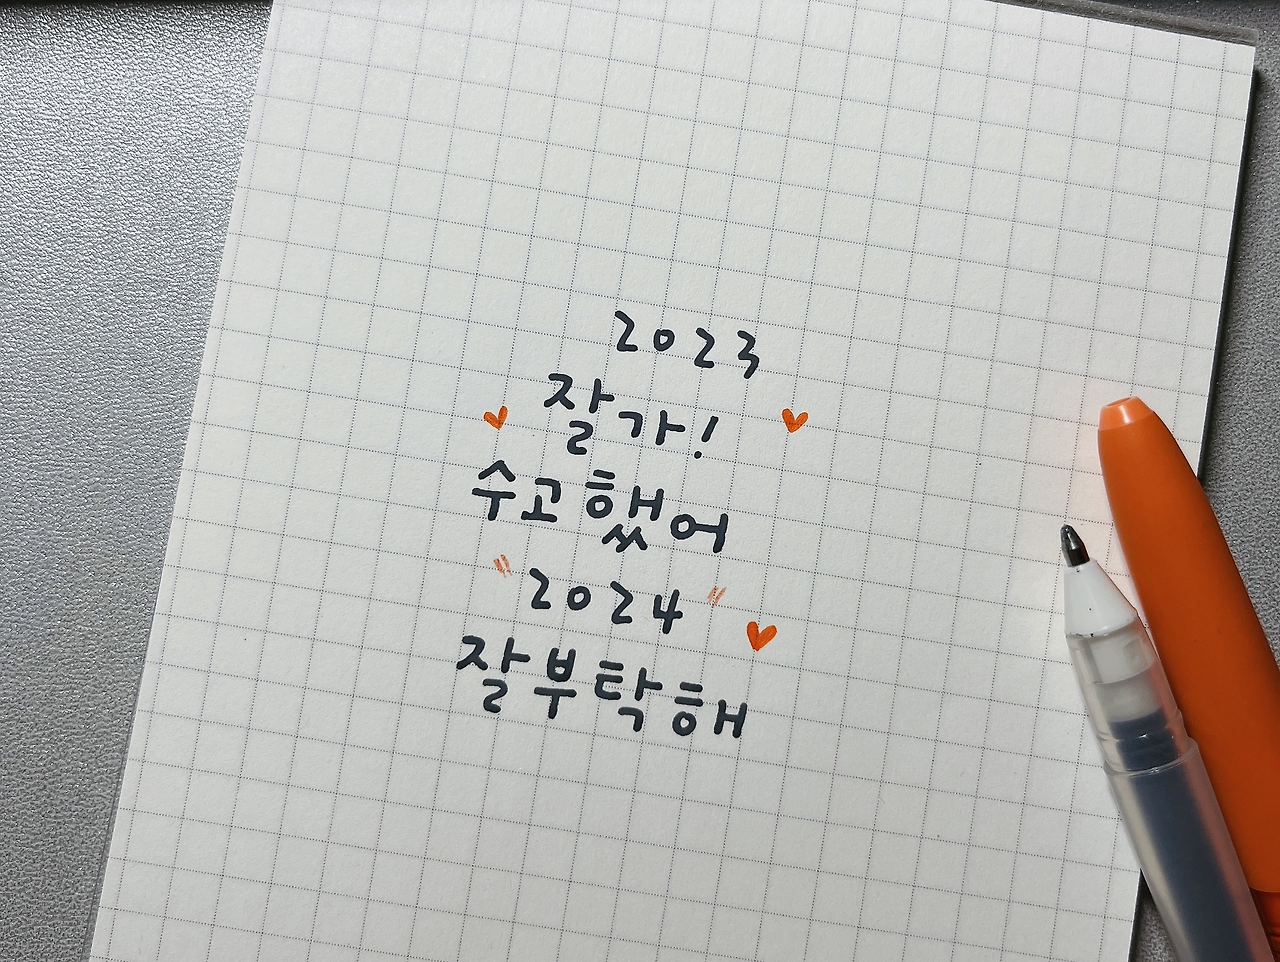 2023
잘가!
수고했어
"2024"
잘부탁해